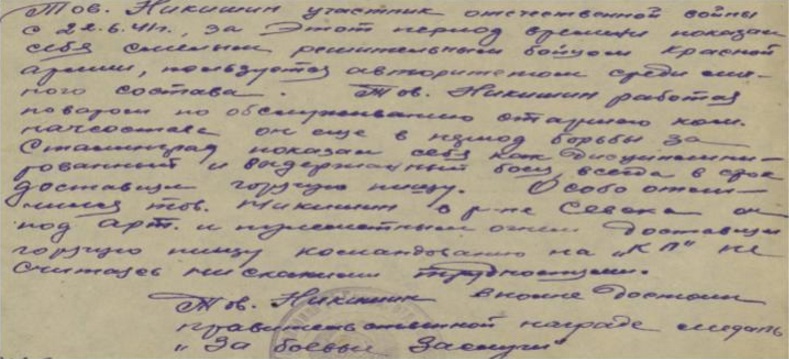 Тов. Никишин участник отечественной войны
с 22.6.41г., за этот период времени показал
себя смелым решительным бойцом красной
армии, пользуется авторитетом среди лич-
ного состава. Тов. Никишин работая
поваром по обслуживанию старшего ком.
начсостава он еще в период борьбы за
Сталинград показал себя как дисциплини-
рованный и выдержанный боец, всегда в срок
доставлял горячую пищу. Особо отли-
чился тов. Никишин в р-не Севска он
под арт. и пулеметным огнем доставлял
горячую пищу командованию на „КП" не
считаясь ни скакими трудностями.
Тов. Никишин вполне достоин
правительственной награде медаль
„За боевые заслуги"